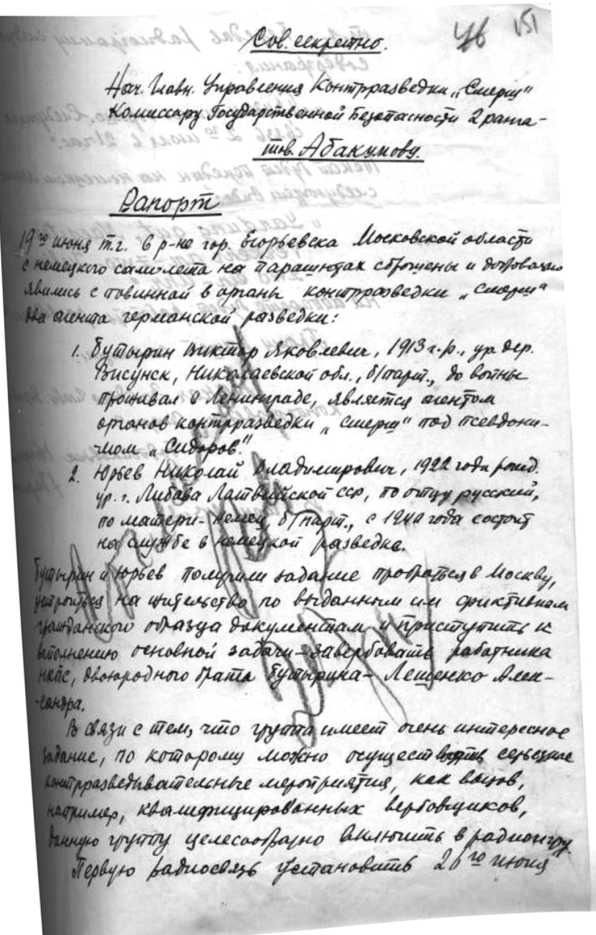 Сов. секретно.
76 151
Нач. Главн. Управления Контрразведки „Смерш"
Комиссару Государственной Безопасности 2 ранга –
тов. Абакумову.
Рапорт
19го июня т.г. в р-не гор. Егорьевска Московской области
с немецкого самолета на парашютах сброшены и добровольно
явились с повинной в органы контрразведки „Смерш"
два агента германской разведки:
1. Бутырин Виктор Яковлевич, 1913 г.р., ур. дер.
Висунск, Николаевской обл., б/парт., до войны
проживал в Ленинграде, является агентом
органов контрразведки „Смерш" под псевдони-
мом „Сидоров."
2. Юрьев Николай Владимирович, 1922 года рожд.
ур. г. Либава Латвийской ССР, по отцу русский,
по матери - немец, б/парт., с 1940 года состоит
на службе в немецкой разведке.
Бутырин и Юрьев получили задание пробраться в Москву,
устроиться на жительство по выданным им фиктивным
гражданского образца документам и приступить к
выполнению основной задачи – завербовать работника
НКПС, двоюродного брата Бутырина – Лещенко Алек-
сандра.
В связи с тем, что группа имеет очень интересное
задание, по которому можно осуществить серьезные
контрразведывательные мероприятия, как вызов,
например, квалифицированных вербовщиков,
данную группу целесообразно включить в радиоигру.
Первую радиосвязь установить 20го июня